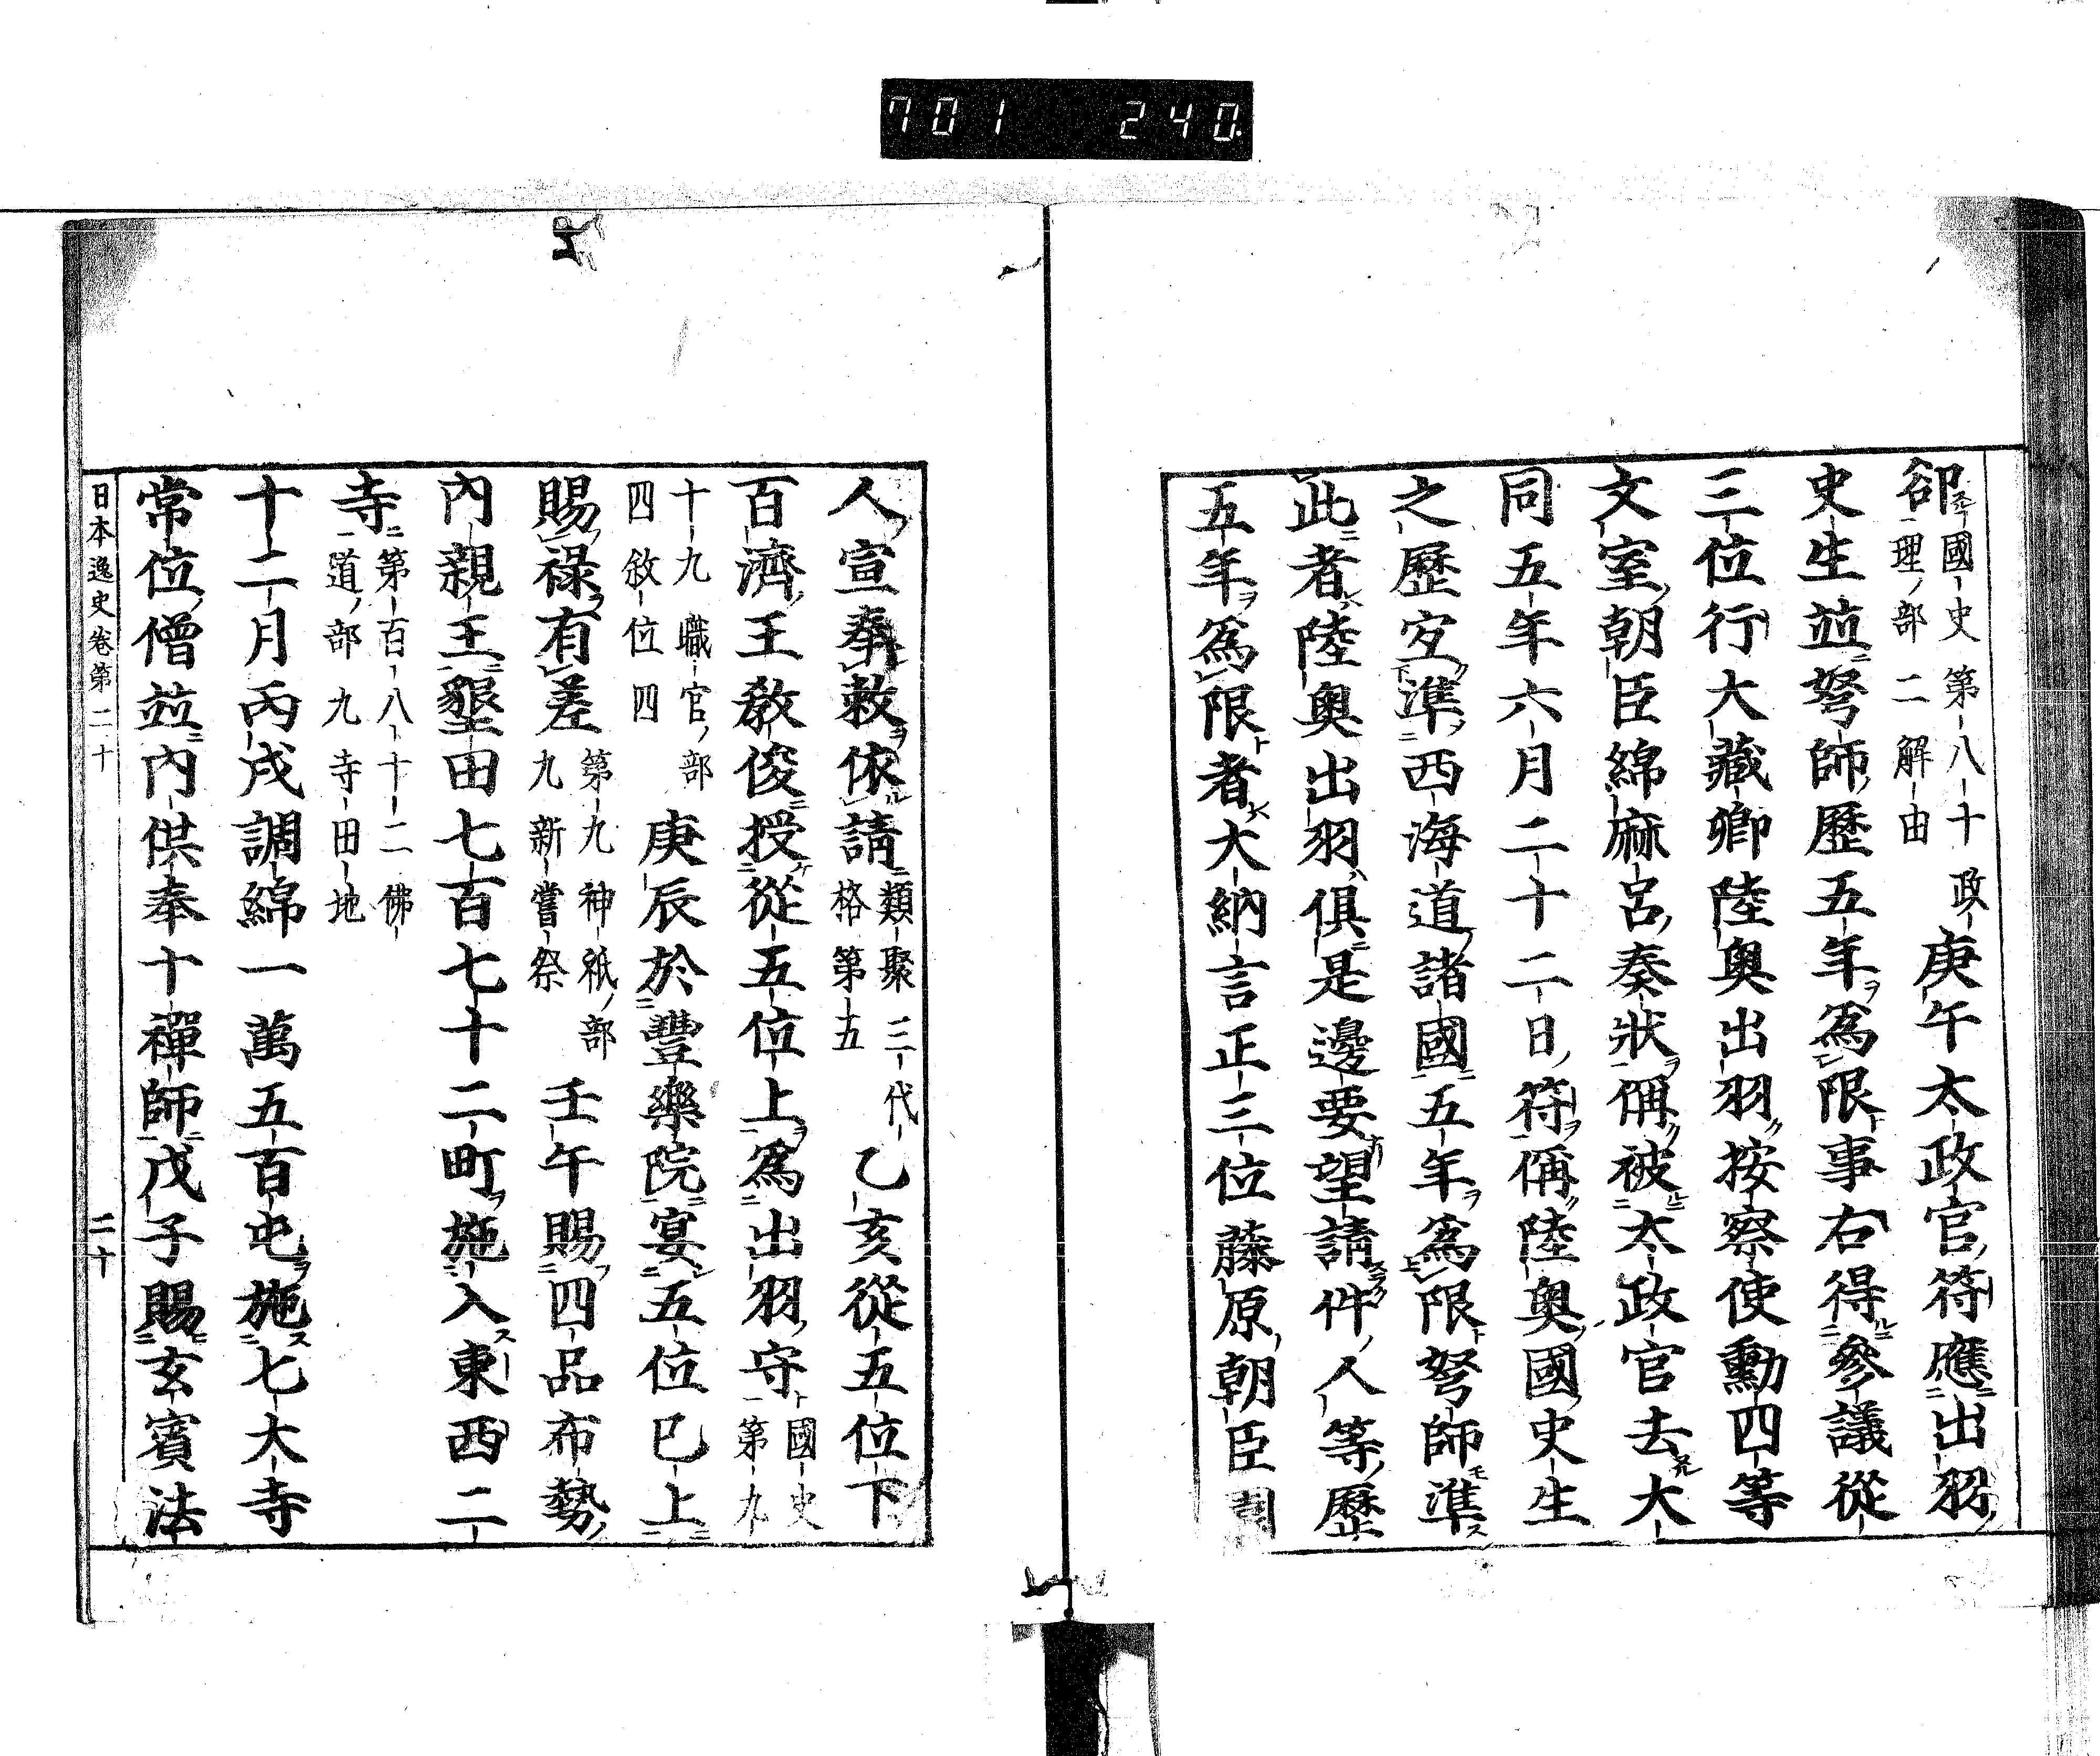 701 240
卻國史第八十政理部二解由庚午太政官符應出羽
史生並弩師歷五年爲限事右得參議從
三位行大藏卿陸奧出羽按察使勳四等
文室朝臣綿麻呂奏狀偁被太政官去大
同五年六月二十二日符偁陸奧國史生
之歷宜準西海道諸國五年爲限弩師準
此者陸奧出羽俱是邊要望請件人等歷
五年爲限者大納言正三位藤原朝臣園
人宣奉敕依請類聚三代格第五乙亥從五位下
百濟王教俊授從五位上爲出羽守國史第九
十九職官部四敘位四庚辰於豐樂院宴五位已上
賜祿有差第九神祇部九新嘗祭壬午賜四品布勢
內親王墾田七百七十二町施入東西二
寺第百八十二佛道部九寺田地
十二月丙戌調綿一萬五百屯施七大寺
常位僧並內供奉十禪師戊子賜玄賓法
日本逸史卷第二十 二十